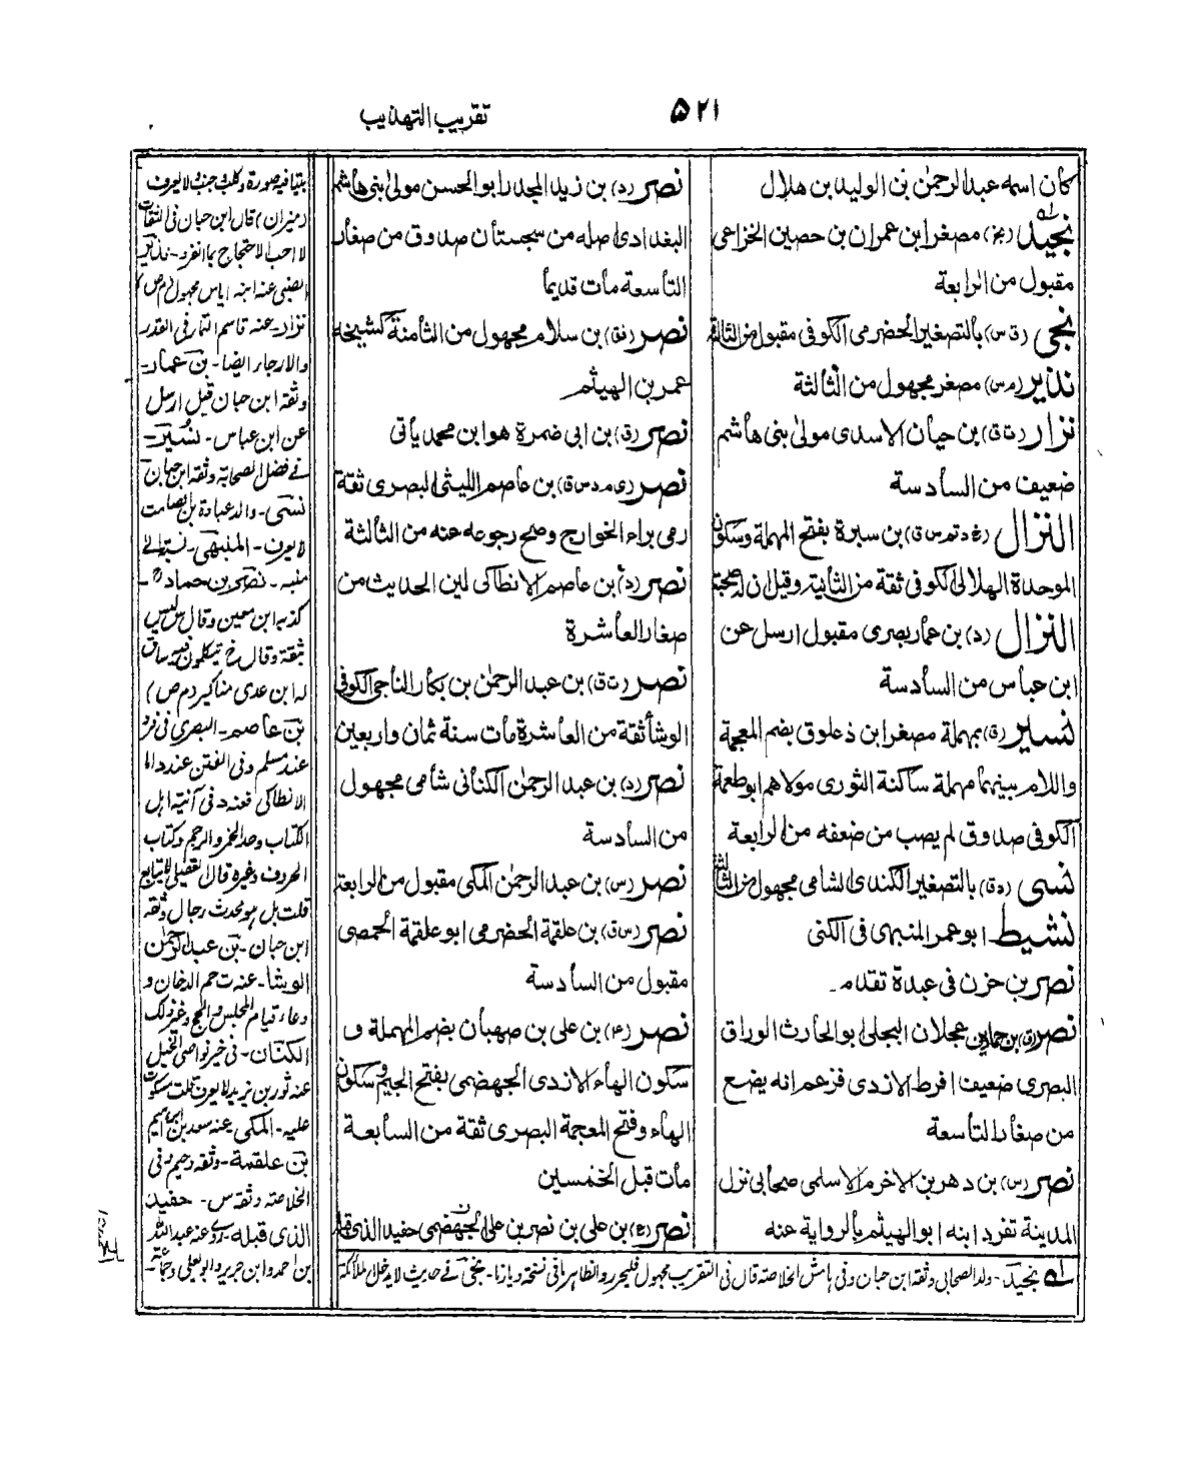 ۵۲۱
تقريب التهذيب
كان اسمه عبدالرحمٰن بن الوليد بن هلال
نجيد (بخ) مصغر ابن عمران بن حصين الخزاعى
مقبول من الرابعة
نجى (دق س) بالتصغير الحضرمى الكوفى مقبول من الثالثة
نذير (مرس) مصغر مجهول من الثالثة
نزار (ت ق) بن حيان الاسدى مولىٰ بنى هاشم
ضعيف من السادسة
النزال (خ د تم س ق) بن سبرة بفتح المهملة وسكون
الموحدة الهلالى الكوفى ثقة من الثانية وقيل ان له صحبة
النزال (د) بن عمار بصرى مقبول ارسل عن
ابن عباس من السادسة
نسير (ق) بمهملة مصغر ابن ذعلوق بضم المعجمة
واللام بينهما مهملة ساكنة الثورى مولاهم ابو طعمة
الكوفى صدوق لم يصب من ضعفه من الرابعة
نسى (دق) بالتصغير الكندى الشامى مجهول من الثالثة
نشيط ابو عمر المنبهى فى الكنى
نصر بن حزن فى عبدة تقدم۔
نصر (ق) بن حماد بن عجلان البجلى ابو الحارث الوراق
البصرى ضعيف افرط الازدى فزعم انه يضع
من صغار التاسعة
نصر (س) بن دهر بن الاخرم الاسلمى صحابى نزل
المدينة تفرد ابنه ابو الهيثم بالرواية عنه
نصر (د) بن زيد المجدر ابو الحسن مولىٰ بنى هاشم
البغدادى اصله من سجستان صدوق من صغار
التاسعة مات قديما
نصر (فق) بن سلام مجهول من الثامنة كشيخه
عمر بن الهيثم
نصر (ق) بن ابى ضمرة هو ابن محمد ياتى
نصر (ى م د س ق) بن عاصم الليثى البصرى ثقة
رمى براء الخوارج وصح رجوعه عنه من الثالثة
نصر (د) بن عاصم الانطاكى لين الحديث من
صغار العاشرة
نصر (ت ق) بن عبد الرحمٰن بن بكار الناجى الكوفى
الوشا ثقة من العاشرة مات سنة ثمان واربعين
نصر (د) بن عبد الرحمٰن الكنانى شامى مجهول
من السادسة
نصر (س) بن عبد الرحمٰن المكى مقبول من الرابعة
نصر (س ق) بن علقمة الحضرمى ابو علقمة الحمصى
مقبول من السادسة
نصر (۴) بن على بن صهبان بضم المهملة و
سكون الهاء الازدى الجهضمى بفتح الجيم وسكون
الهاء وفتح المعجمة البصرى ثقة من السابعة
مات قبل الخمسين
نصر (ع) بن على بن نصر بن على الجهضمى حفيد الذى قبله
بقيا فيه صورة وكلب جنب لا يعرف
(ميزان) قال ابن حبان فى الثقات
لا احب الاحتجاج بما انفرد۔ نذير
الضبى عنه ابنه اياس مجهول (م ص)
نزار۔ عنه قاسم التمار فى القدر
والارجاء ايضا۔ بن عمار۔
وثقه ابن حبان قيل ارسل
عن ابن عباس۔ نسير۔
فى فضل الصحابة وثقه ابن حبان
نسى۔ والد عبادة بن الصامت
لا يعرف۔ المنبهى۔ نسبة الى
منبه۔ نصر بن حماد۔
كذبه ابن معين وقال مسلم ليس
بثقة وقال خ يتكلمون فيه ساق
له ابن عدى مناكير (م ص)
بن عاصم۔ البصرى فى فرد
عند مسلم وفى الفتن عند د اما
الانطاكى فعند د فى آنية اهل
الكتاب وحد الخمر والرجم وكتاب
الحروف وغيره قال العقيلى لا يتابع
قلت بل هو محدث رجال وثقه
ابن حبان۔ بن عبد الرحمٰن
الوشا۔ عند ت حم الدخان و
دعاء قيام المجلس والحج وغير ذلك
الكنانى۔ فى خير نواصى الخيل
عنه ثور بن يزيد لا يعرف قلت سكوت
عليه۔ المكى عنه سعد بن ابراهيم
بن علقمة۔ وثقه دحيم وفى
الخلاصة وثقه س۔ حفيد
الذى قبله۔ روى عنه عبد الله
بن احمد وابن جرير وابو يعلى وجماعة۔
له نجيد۔ ولد الصحابى وثقه ابن حبان وفى هامش الخلاصة قال فى التقريب مجهول فليحرر والظاهر ما فى نسخة ديارنا۔ نجى فى حديث لا يدخل ملائكة